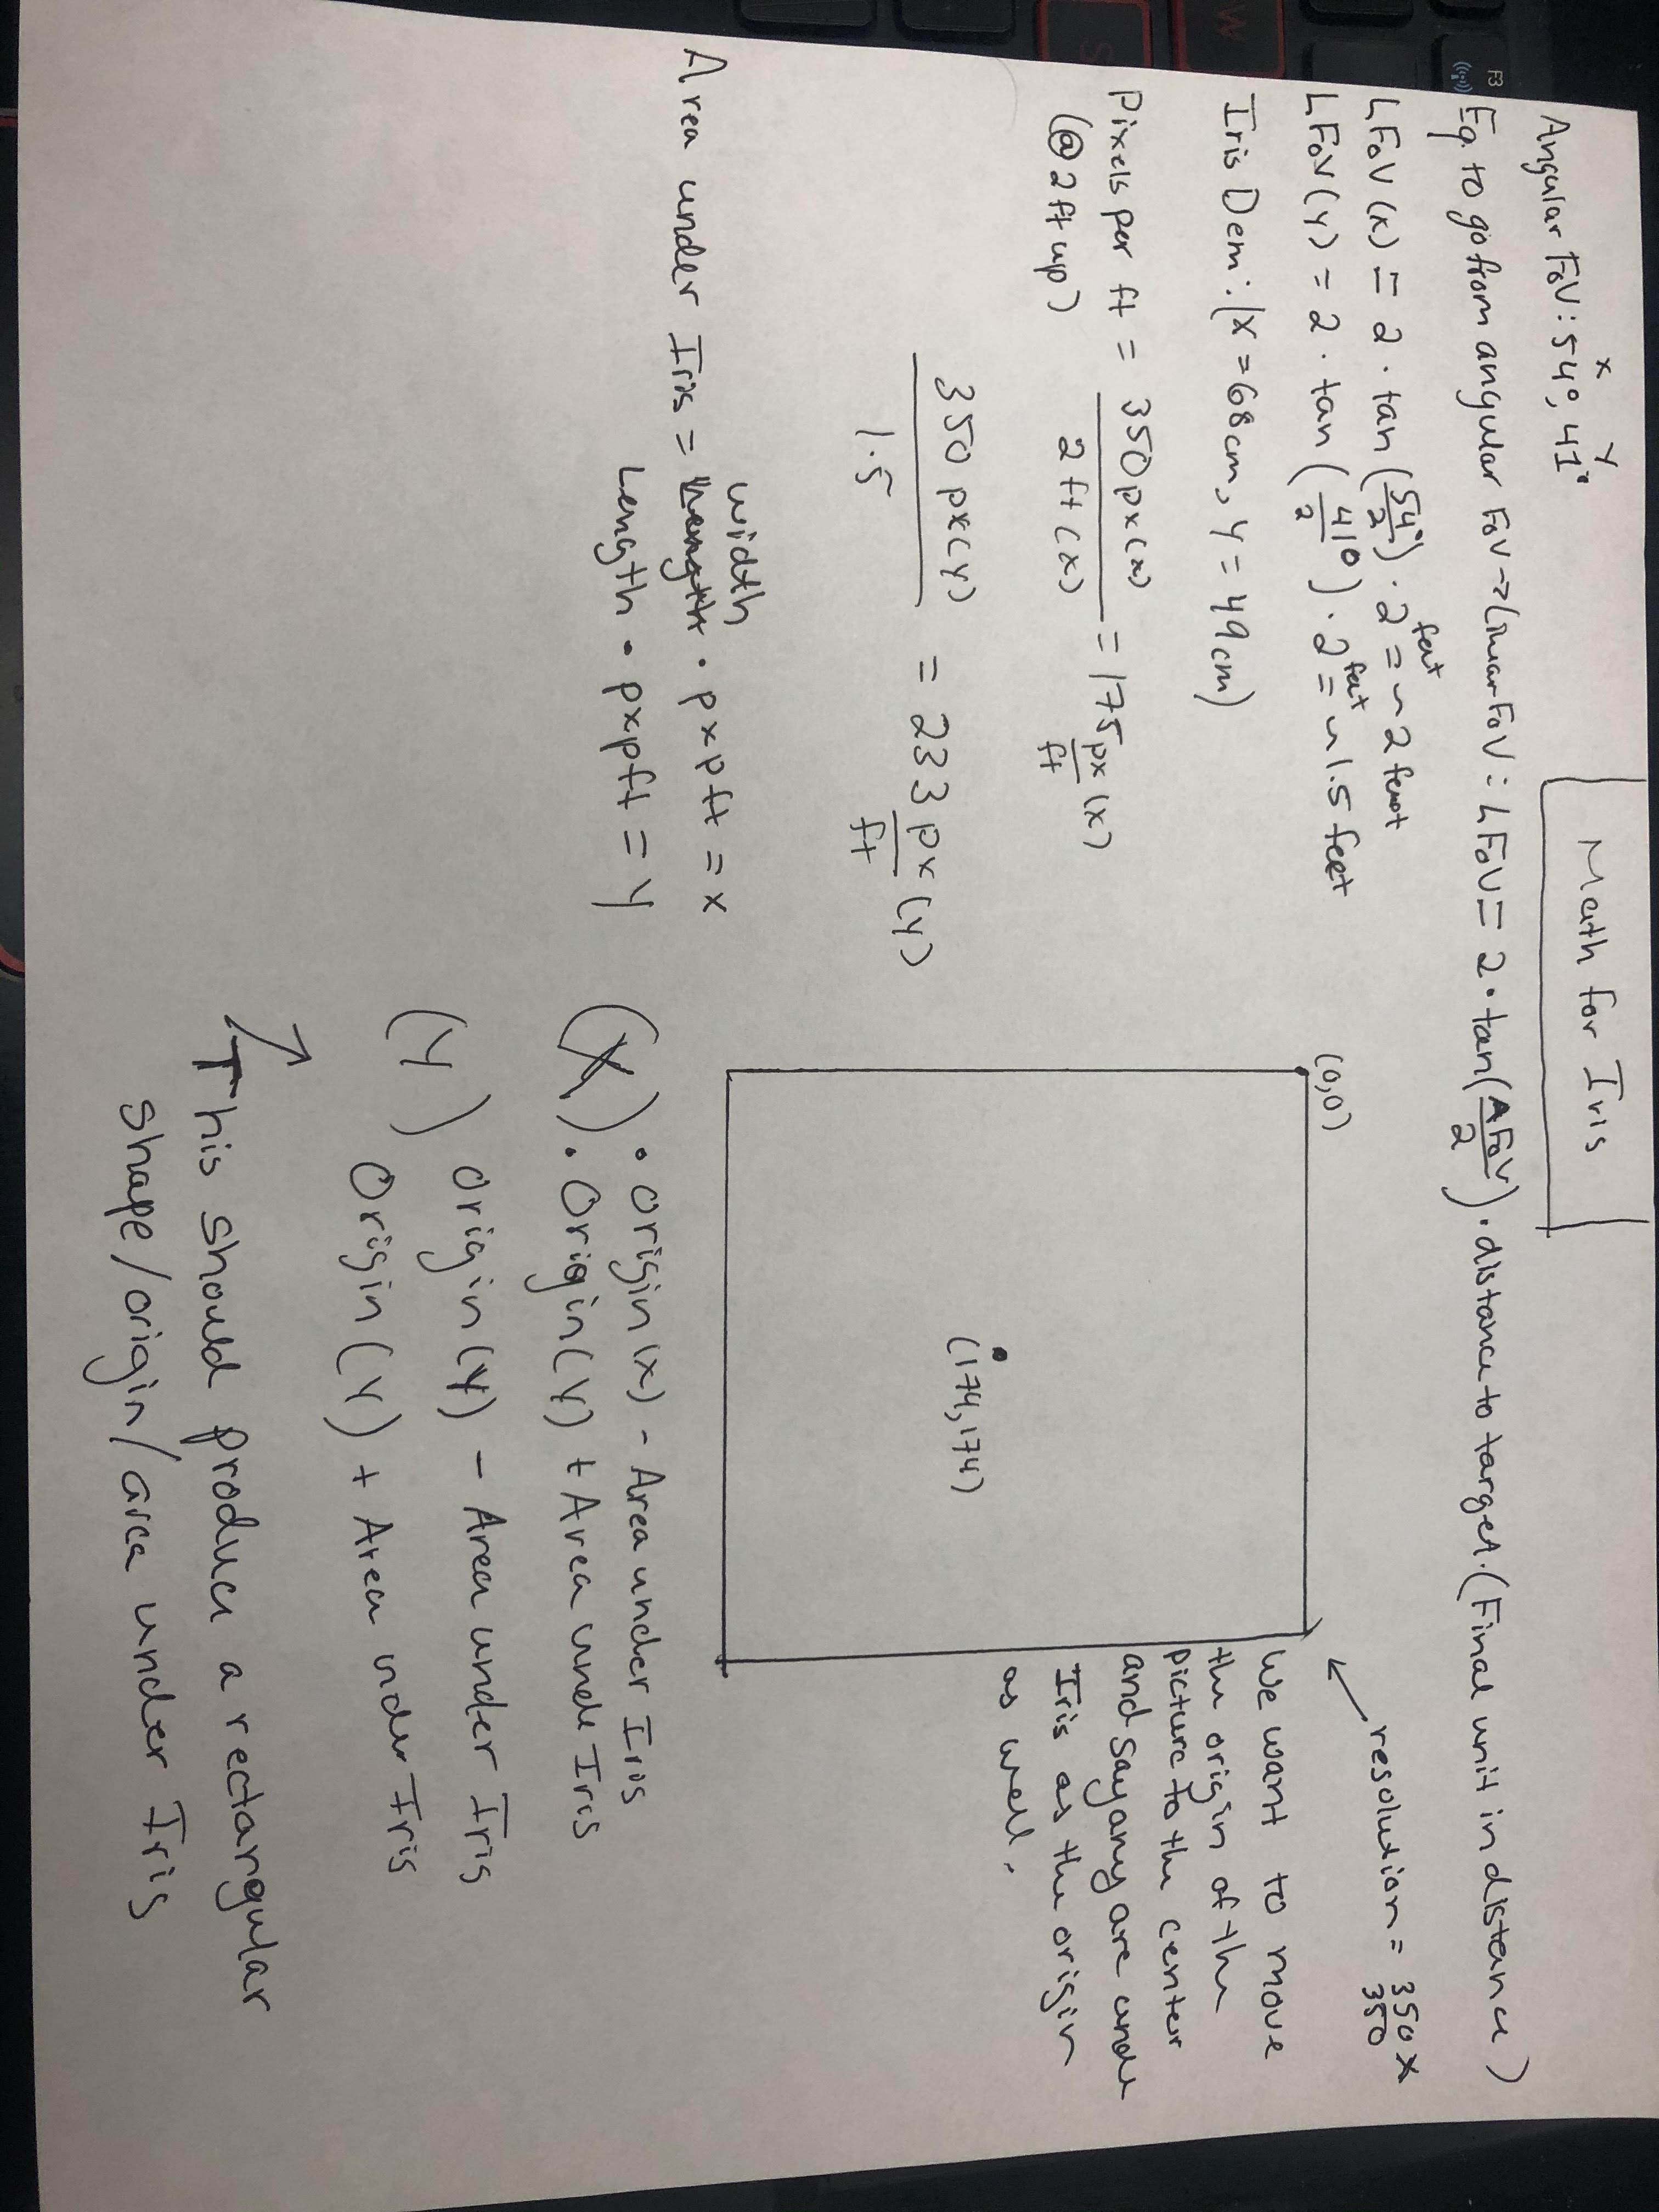 Math for Iris
x y
Angular FoV: 54°, 41°
Eq. to go from angular FoV → linear FoV: LFoV = 2 · tan(AFoV/2) · distance to target. (Final unit in distance)
LFoV(x) = 2 · tan(54°/2) · 2 feet = ~2 feet
LFoV(y) = 2 · tan(41°/2) · 2 feet = ~1.5 feet
Iris Dem: (x = 68cm, y = 49cm)
Pixels per ft = 350px(x) / 2ft(x) = 175 px/ft (x)
(@ 2ft up)
350 px(y) / 1.5 = 233 px/ft (y)
Area under Iris = width · pxpft = x
Length · pxpft = y
(0,0)
(174,174)
resolution = 350 x 350
We want to move
the origin of the
picture to the center
and say any are under
Iris as the origin
as well.
(X) · origin(x) - Area under Iris
· Origin(y) + Area unde Iris
(Y) origin(y) - Area under Iris
Origin(y) + Area under Iris
This should produce a rectangular
shape/origin/area under Iris
F3
W
S